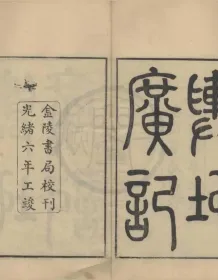 地廣記
金陵書局校刊
光緒六年工竣